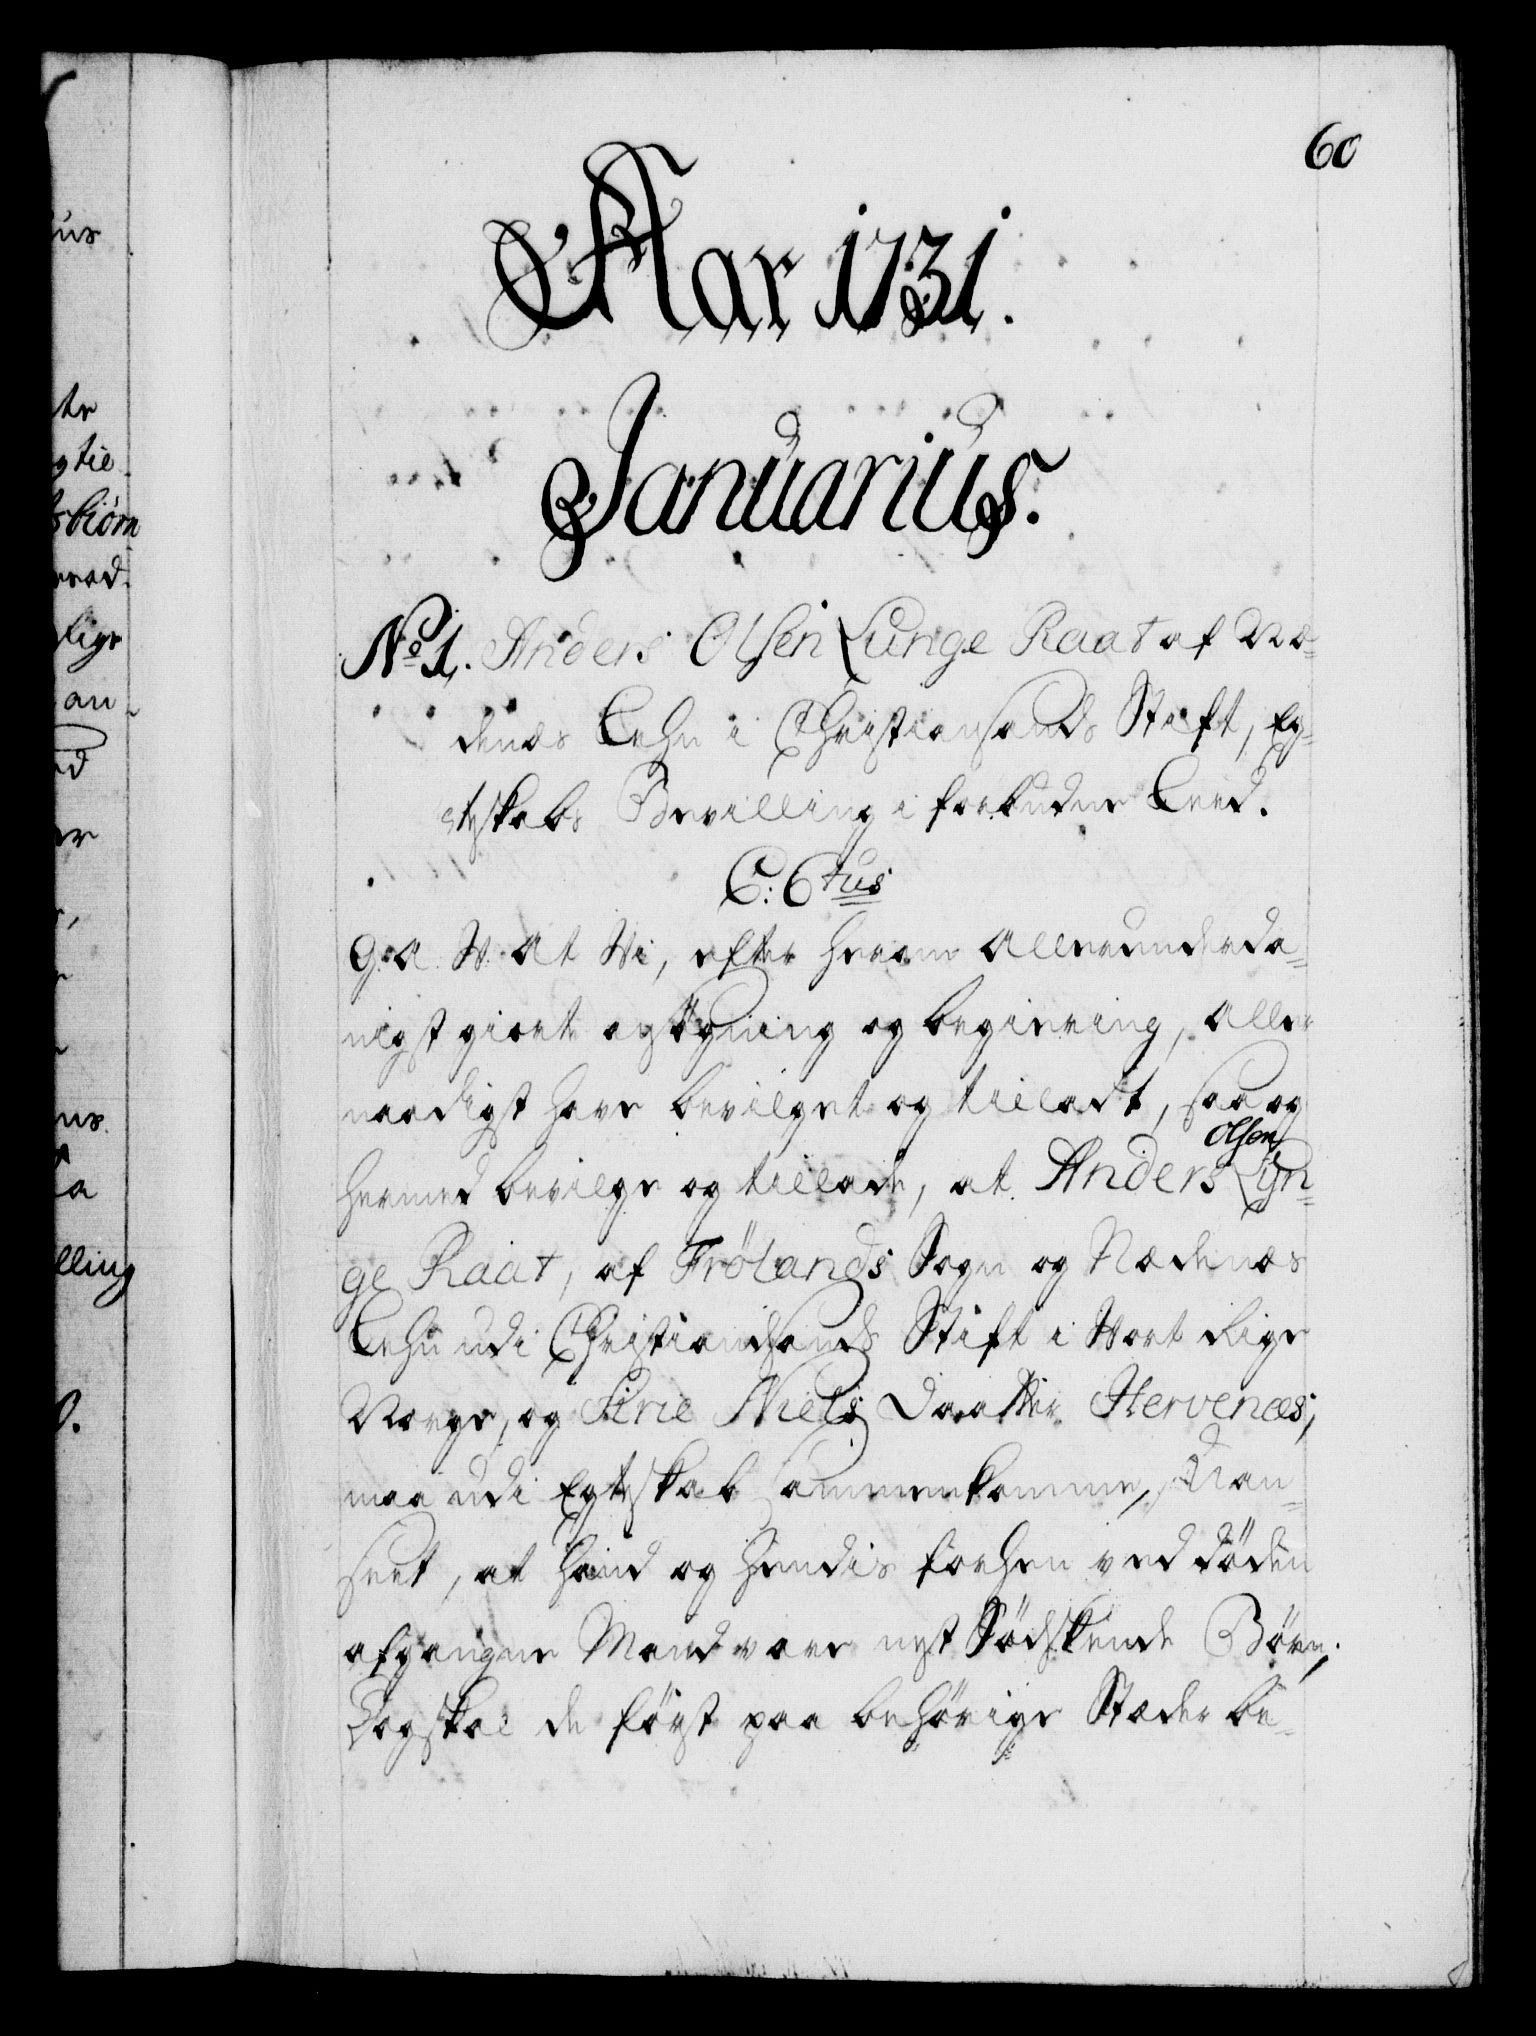 60
Aar 1731.
Januarius.
No 1. Anders Olsen Lunge Raat af Næ-
denæs Lehn i Christiansands Stift, Eg-
teskabs Bevilling i forbudne Leed.
C: 6tus
G: A. W. At Wi, efter herom Allerunderda-
nigst giorte ansøgning og begiering, Aller
naadigst have bevilget og tilladt, saa og
hermed bevilge og tillade, at Anders Olsen Lyn-
ge Raat, af Frölands Sogn og Nædenæs
Lehn udi Christiandsands Stift i Vort Rige
Norge, og Sirie Niels Daatter Hervenæs,
maa udi Egteskab sammenkomme, Uan-
seet, at hand og hendis forhen ved döden
afgangne Mand vare nest Södskende Börn;
Dog skal de först paa behörige Stæder be-
us
te
gtie
sbiörn
lige
an-
d
er
ns.
a
lling
0.